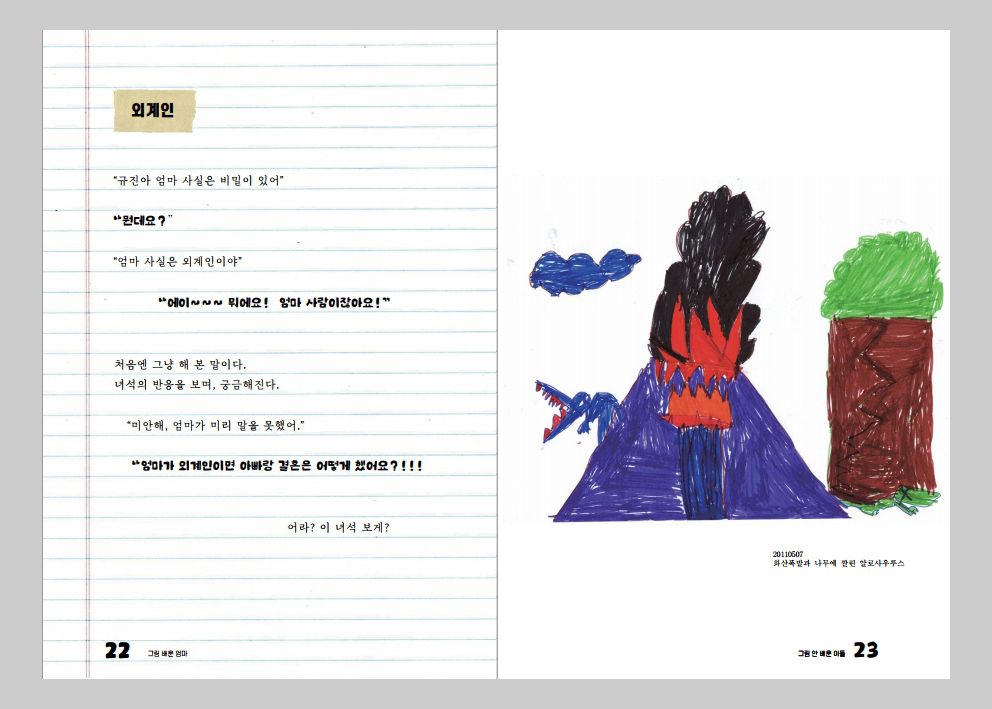 외계인
“규진아 엄마 사실은 비밀이 있어”
“뭔데요?”
“엄마 사실은 외계인이야”
“에이~~~ 뭐에요! 엄마 사람이잖아요!”
처음엔 그냥 해 본 말이다.
녀석의 반응을 보며, 궁금해진다.
“미안해, 엄마가 미리 말을 못했어.”
“엄마가 외계인이면 아빠랑 결혼은 어떻게 했어요?!!!
어라? 이 녀석 보게?
22 그림 배운 엄마
20110507
화산폭발과 나무에 깔린 알로사우루스
그림 안 배운 아들 23